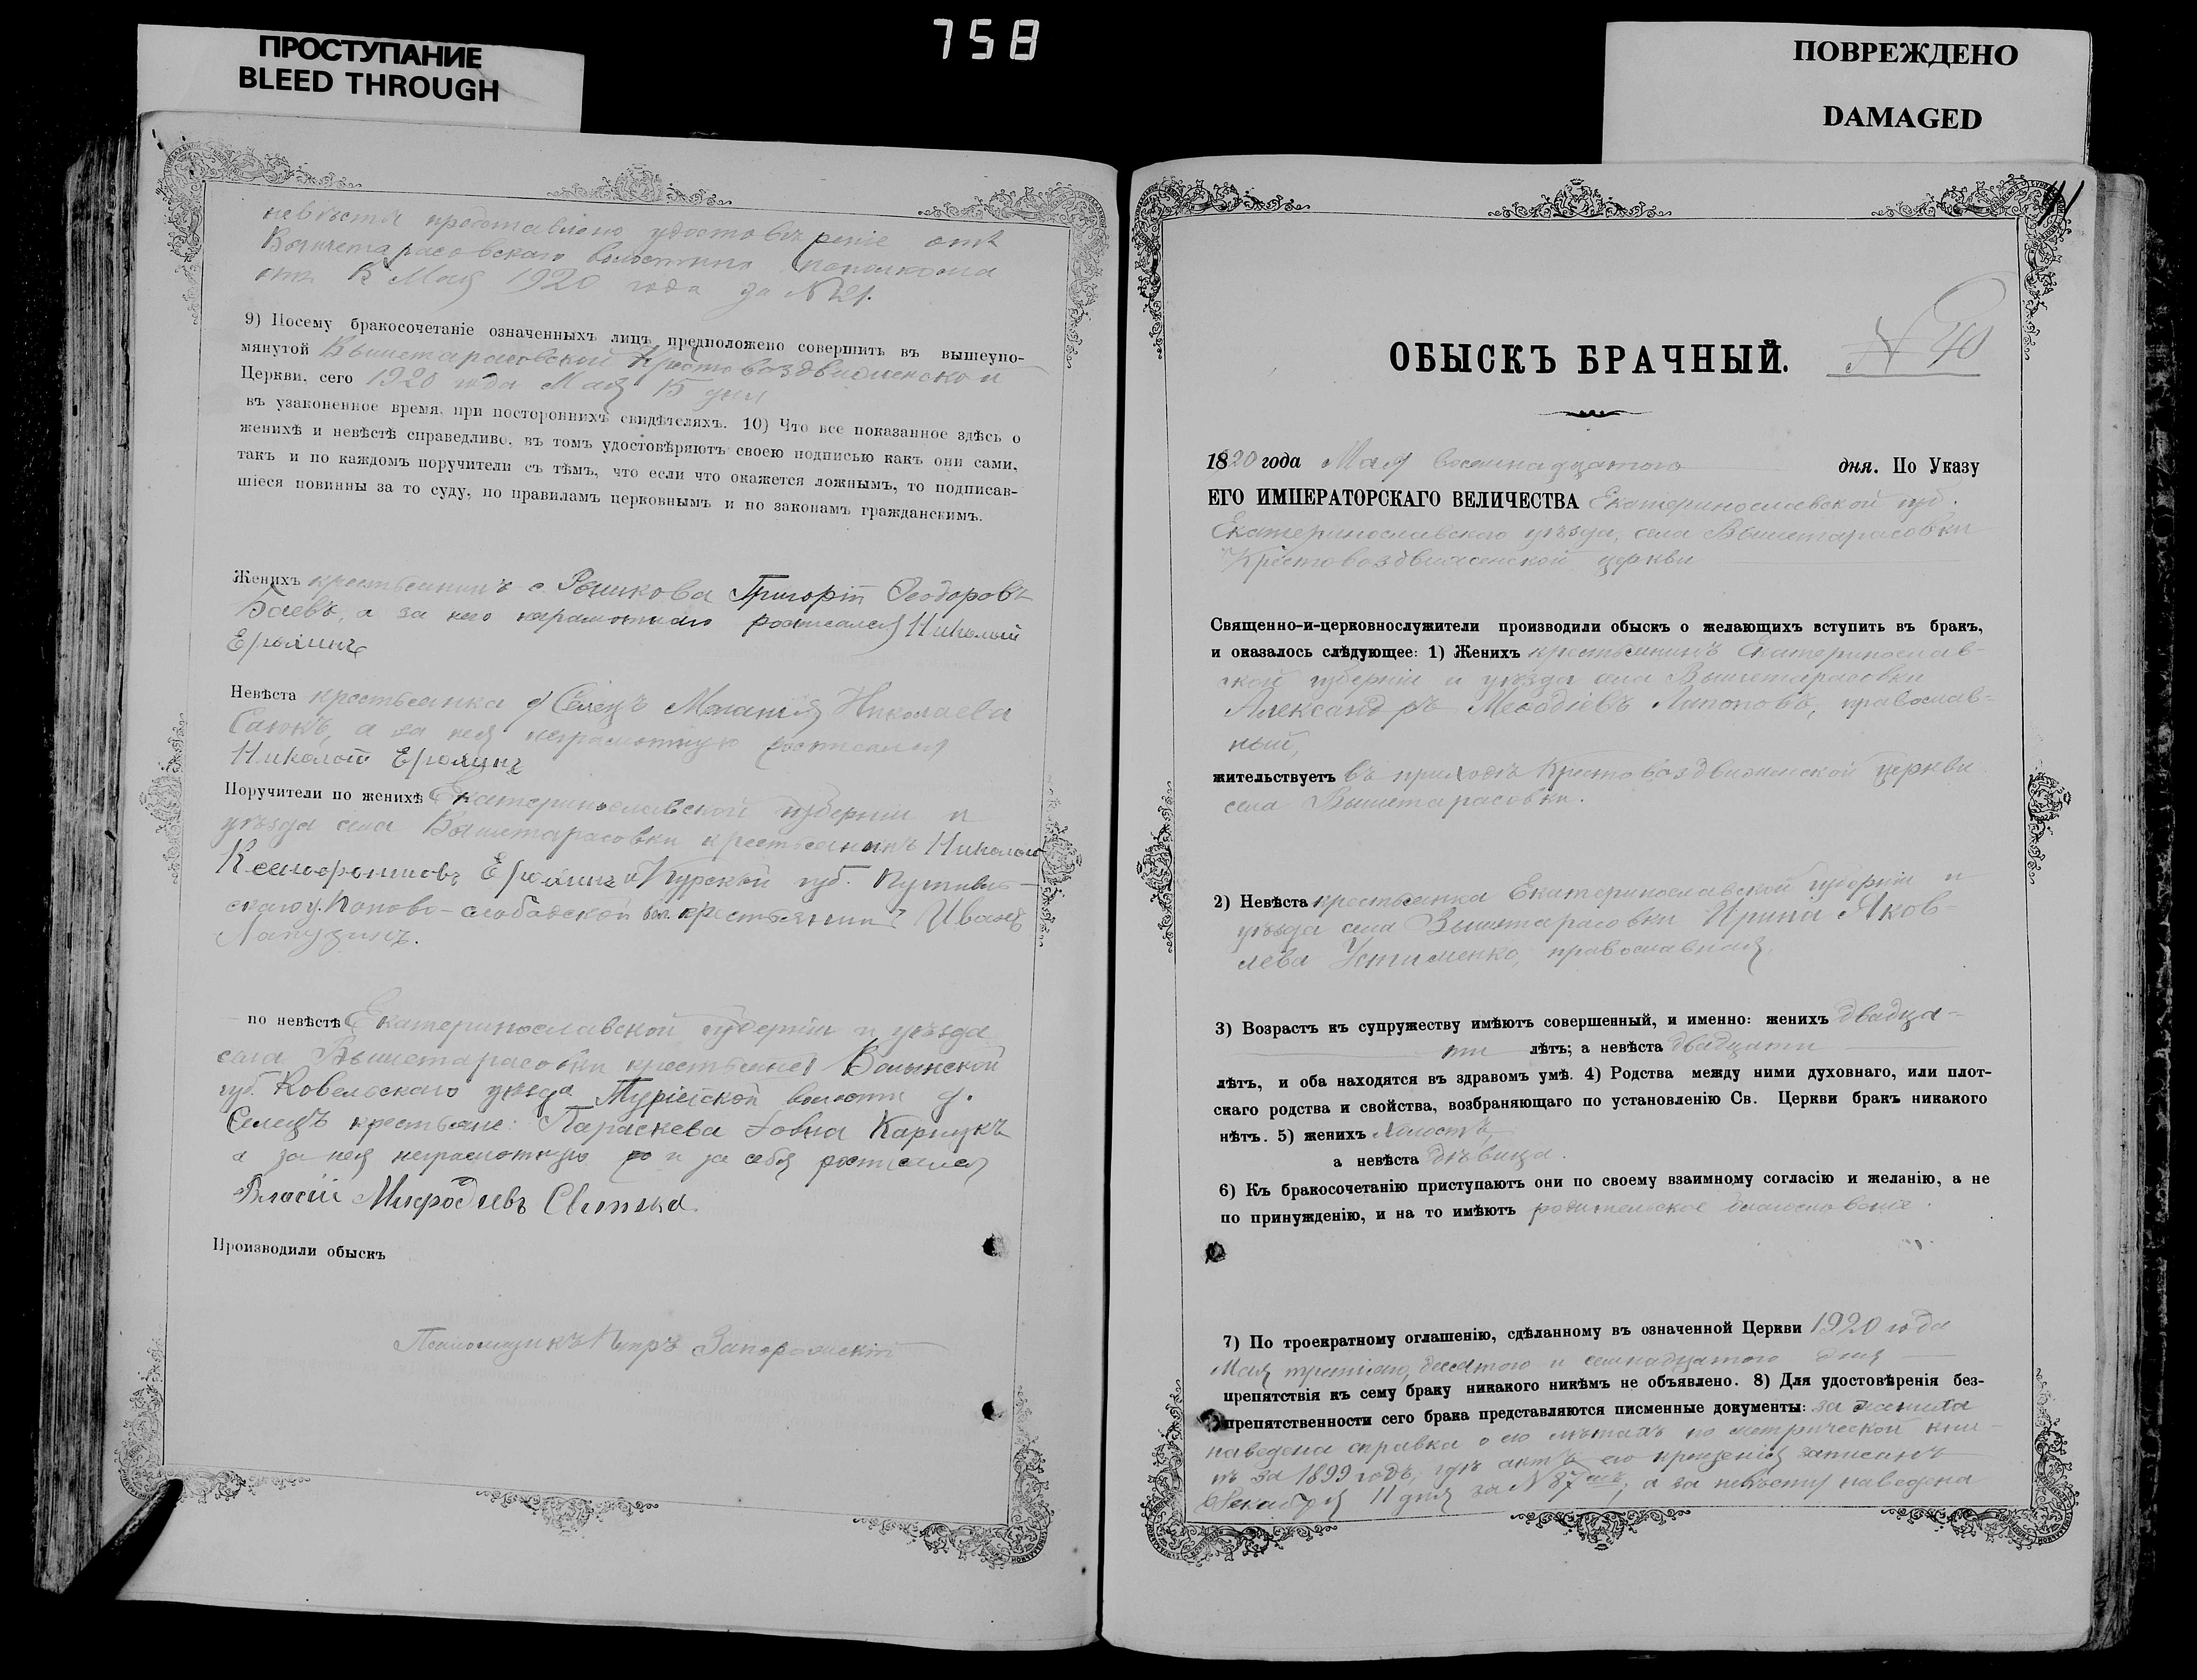 ПРОСТУПАНИЕ
BLEED THROUGH
758
ПОВРЕЖДЕНО
DAMAGED
невѣсты предотавлено удостовѣреніе отъ
Вышетарасовскаго волостнаго
отъ Мая 1920 года за № 21.
9) Посему бракосочетаніе означенныхъ лицъ предположено совершить въ вышеупо-
мянутой Вышетарасовской Крестовоздвиженской
Церкви, сего 1920 года Мая 15 дня
въ узаконенное время, при постороннихъ свидѣтеляхъ. 10) Что все показанное здѣсь о
женихѣ и невѣстѣ справедливо, въ томъ удостовѣряютъ своею подписью какъ они сами,
такъ и по каждомъ поручители съ тѣмъ, что если что окажется ложнымъ, то подписав-
шіеся повинны за то суду, по правиламъ церковнымъ и по законамъ гражданскимъ.
Женихъ крестьянинъ с. Григорій Ѳеодоровъ
Баевъ, а за него неграмотнаго росписался Николай
Невѣста крестьянка д. Селецъ Меланія Николаева
Саюкъ, а за нея неграмотную росписался
Николай
Поручители по женихѣ Екатеринославской губерніи и
уѣзда села Вышетарасовки крестьянинъ Николай
Ксенофонтовъ и Курской губ. Путивль-
скаго у. Попово-слободской вол. крестьянинъ Иванъ
Лапузинъ.
по невѣстѣ Екатеринославской губерніи и уѣзда
села Вышетарасовки крестьянет Волынской
губ. Ковельскаго уѣзда Турійской волости д.
Селецъ крестьяне: Параскева Іовна Карпукъ
а за нея неграмотную и за себя росписался
Власій Мифодіевъ
Производили обыскъ
Псаломщикъ Петръ Запорожскій
41
ОБЫСКЪ БРАЧНЫЙ.
№ 40
1820 года Мая восемнадцатаго дня. По Указу
ЕГО ИМПЕРАТОРСКАГО ВЕЛИЧЕСТВА Екатеринославской губ.
Екатеринославскаго уѣзда, села Вышетарасовки
Крестовоздвиженской церкви
Священно-и-церковнослужители производили обыскъ о желающихъ вступить въ бракъ,
и оказалось слѣдующее: 1) Женихъ крестьянинъ Екатеринослав-
ской губерніи и уѣзда села Вышетарасовки
Александръ Меѳодіевъ Лапоновъ, православ-
ный,
жительствуетъ въ приходѣ Крестовоздвиженской церкви
села Вышетарасовки.
2) Невѣста крестьянка Екатеринославской губерніи и
уѣзда села Вышетарасовки Ирина Яков-
лева Устименко, православная.
3) Возрастъ къ супружеству имѣютъ совершенный, и именно: женихъ двадца-
ти лѣтъ; а невѣста двадцати
лѣтъ, и оба находятся въ здравомъ умѣ. 4) Родства между ними духовнаго, или плот-
скаго родства и свойства, возбраняющаго по установленію Св. Церкви бракъ никакого
нѣтъ. 5) женихъ холостъ,
а невѣста дѣвица.
6) Къ бракосочетанію приступаютъ они по своему взаимному согласію и желанію, а не
по принужденію, и на то имѣютъ родительское благословеніе.
7) По троекратному оглашенію, сдѣланному въ означенной Церкви 1920 года
Мая третьяго, десятаго и семнадцатаго дня
препятствія къ сему браку никакого никѣмъ не объявлено. 8) Для удостовѣренія без-
препятственности сего брака представляются писменные документы: за жениха
наведена справка о его лѣтахъ по метрической кни-
гѣ за 1899 годъ, гдѣ актъ его крещенія записанъ
Декабря 11 дня за № 87, а за невѣсту наведена